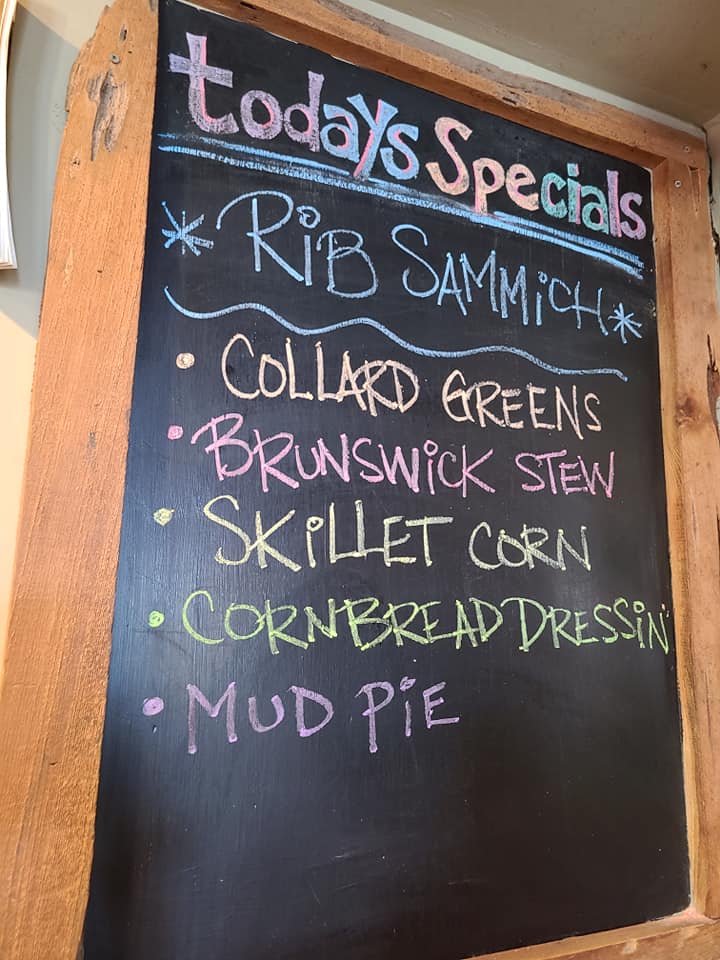 todays Specials
* RiB SAMMiCH *
• COLLARD GREENS
• BRUNSWiCK STEW
• SKiLLET CORN
• CORNBREAD DRESSiN'
• MUD PiE